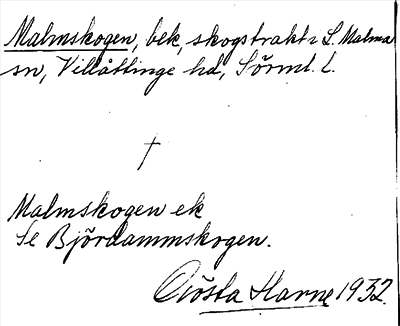 Malmskogen, bek, skogstrakt i L. Malma
sn, Villåttinge hd, Sörml. l.
†
Malmskogen ek
Se Björdammskogen.
Gösta Harne 1932